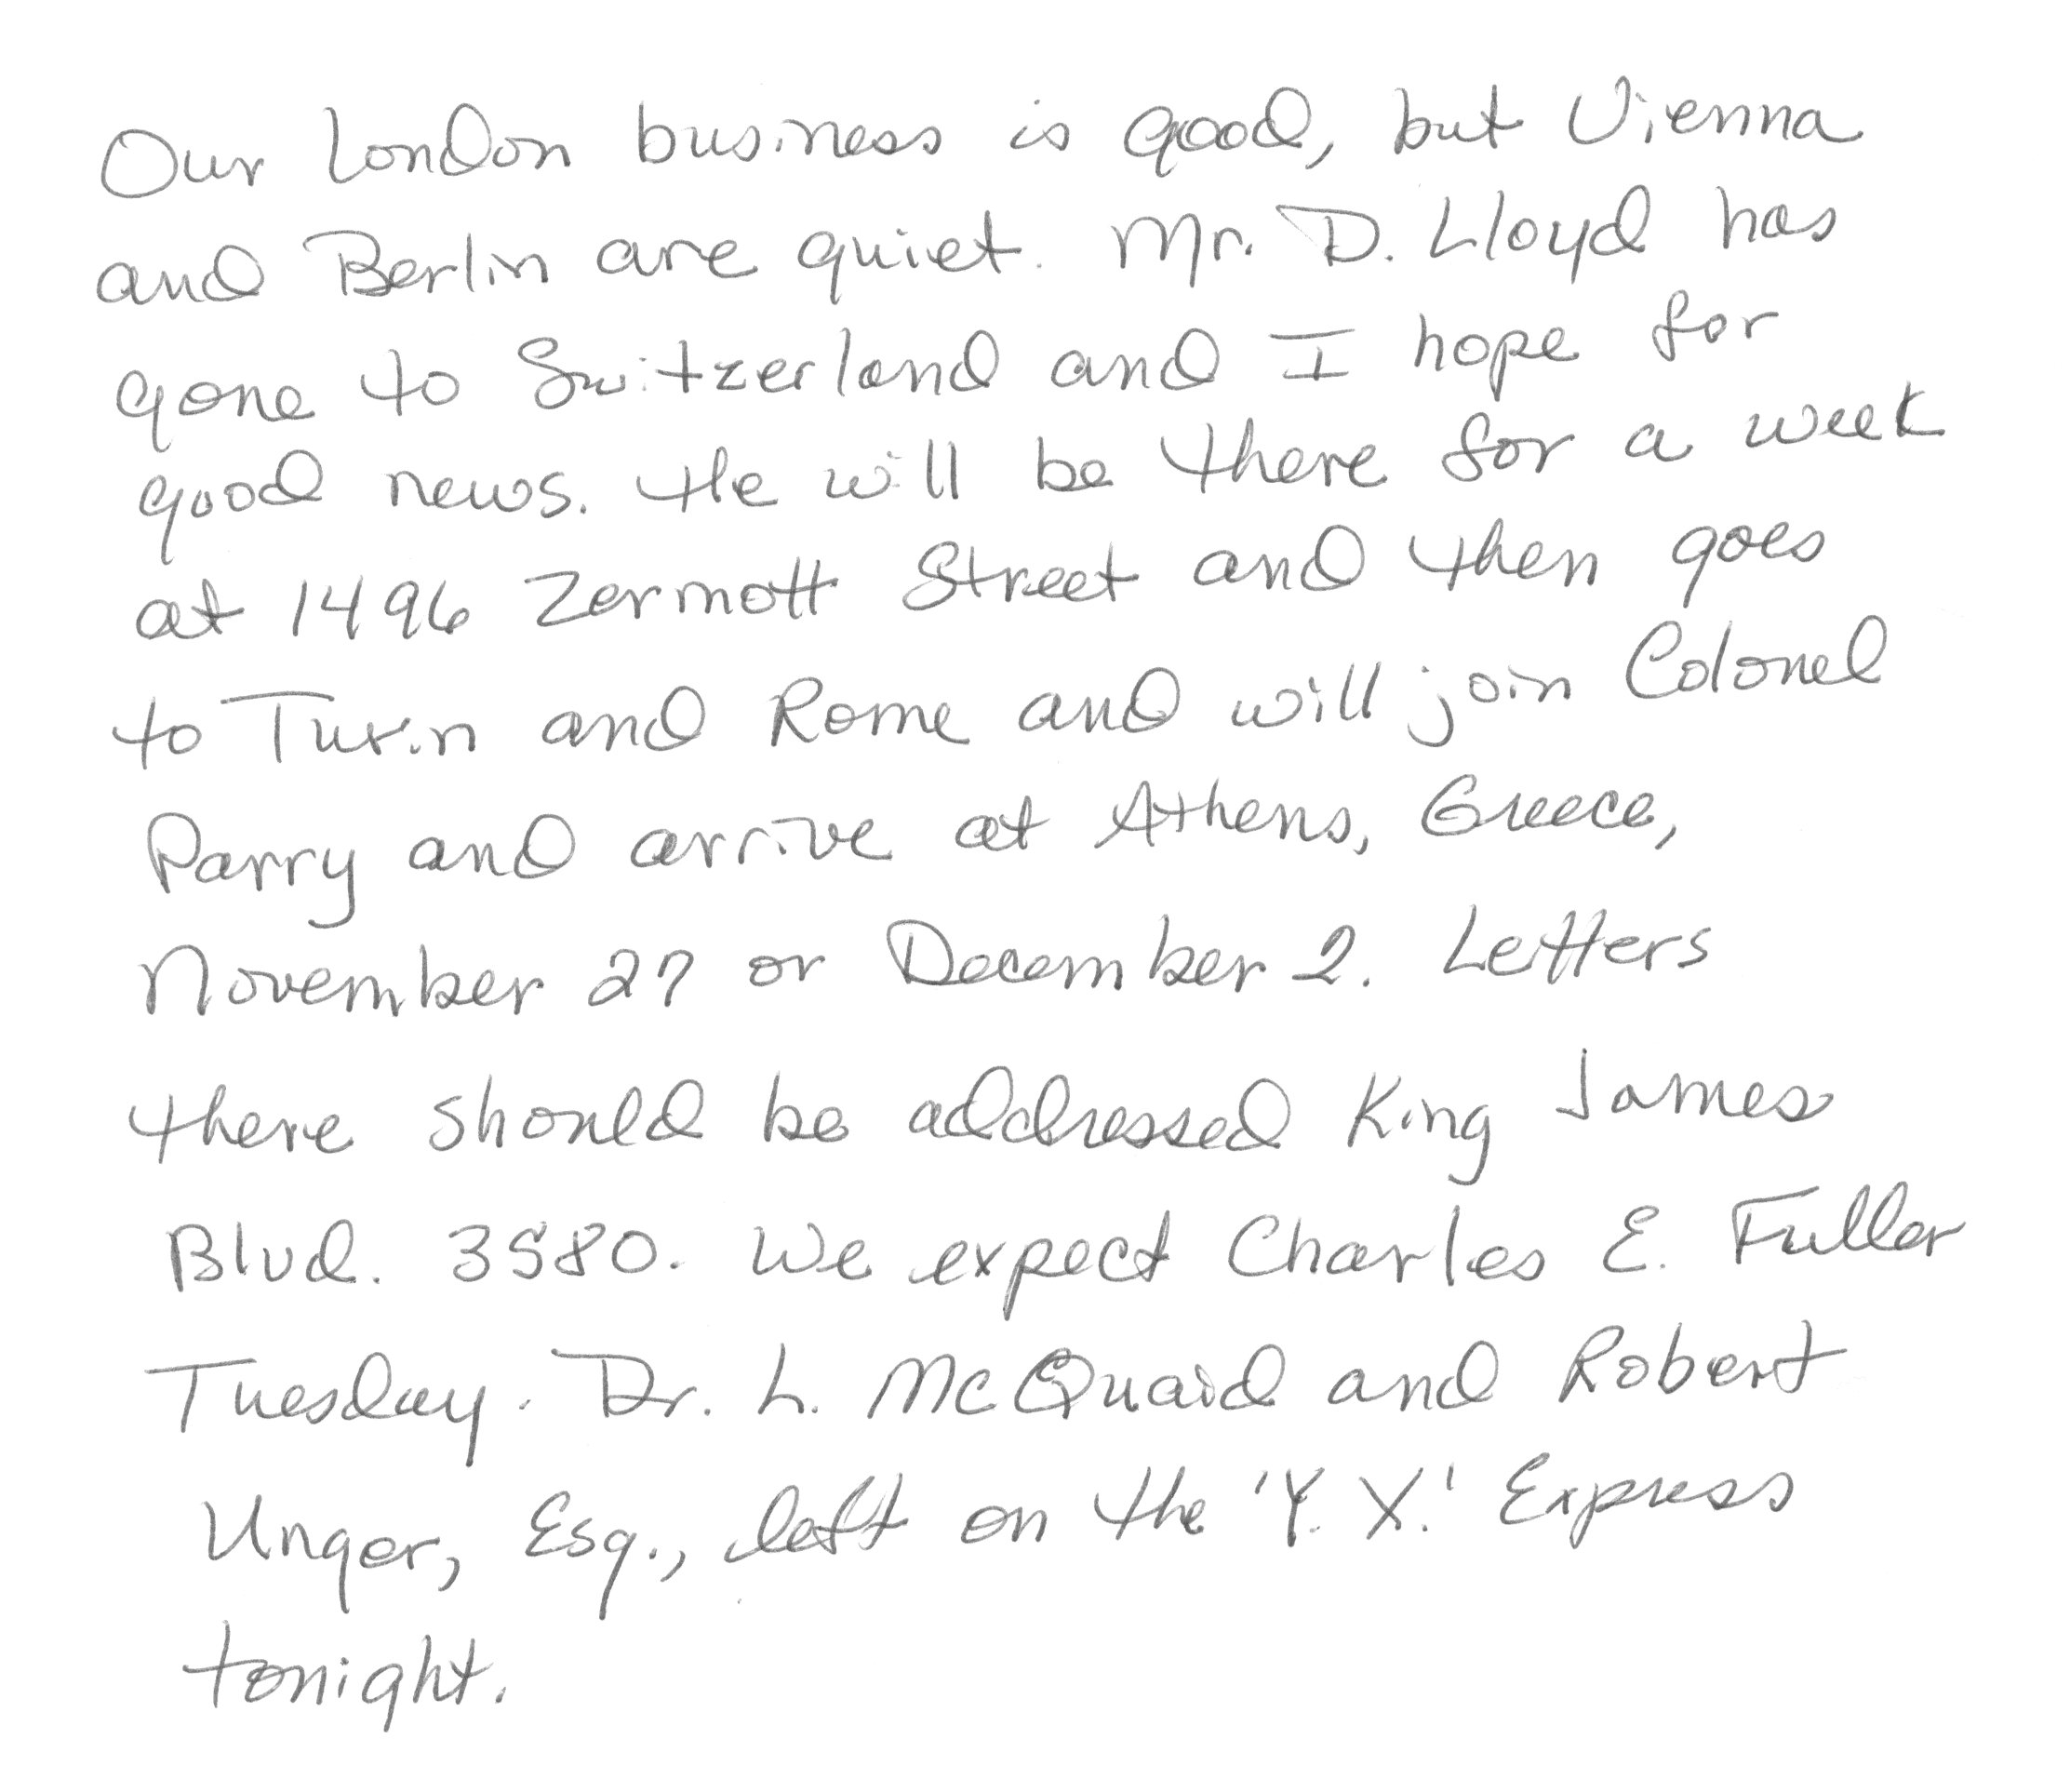 Our London business is good, but Vienna
and Berlin are quiet. Mr. D. Lloyd has
gone to Switzerland and I hope for
good news. He will be there for a week
at 1496 Zermott Street and then goes
to Turin and Rome and will join Colonel
Parry and arrive at Athens, Greece,
November 27 or December 2. Letters
there should be addressed King James
Blvd. 3580. We expect Charles E. Fuller
Tuesday. Dr. L. McQuaid and Robert
Unger, Esq., left on the 'Y. X.' Express
tonight.